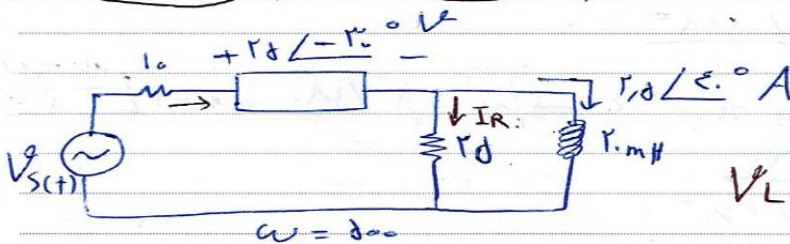 + ۲۵ ∠-۳۰° V -
۱۰
۲,۵ ∠۴۰° A
I_R
۲۵
۲۰ mH
V_S(t)
V_L
ω = ۵۰۰